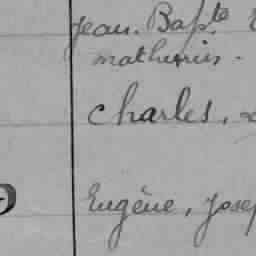 Jean. Bapte
mathurin.
Charles,
Eugène, Josep